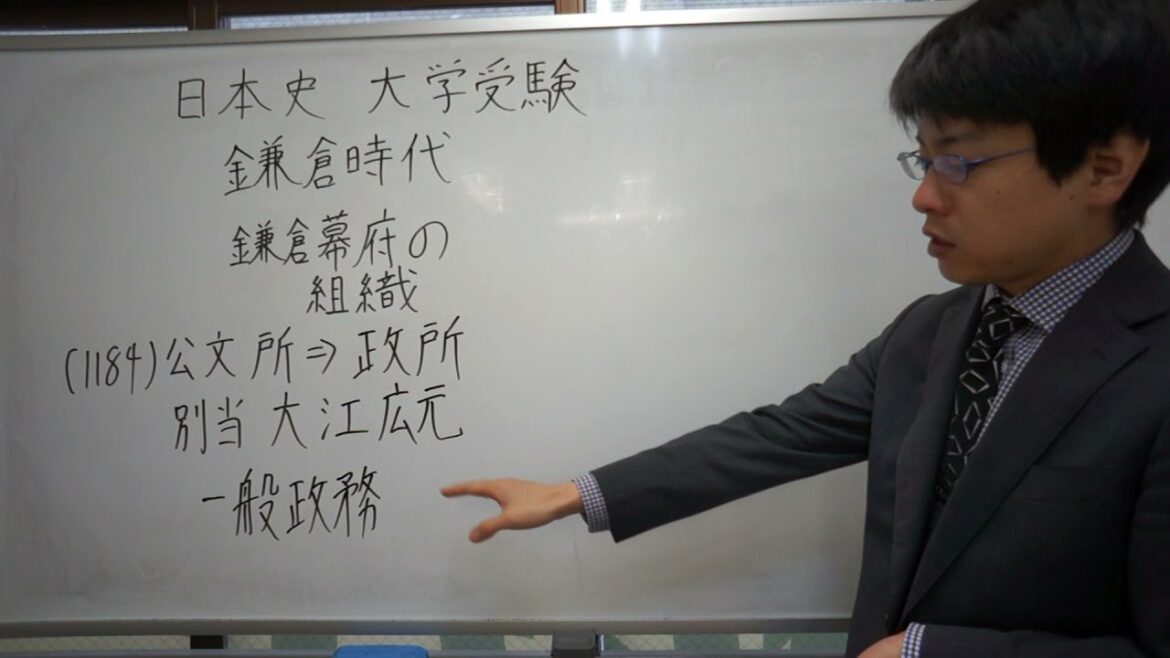 日本史 大学受験
鎌倉時代
鎌倉幕府の
組織
(1184)公文所⇒政所
別当 大江広元
一般政務